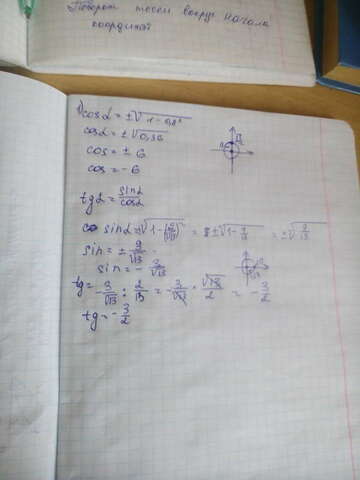 Поворот точки вокруг начала
координат
1) cos α = ±√1 - 0,8²
cos α = ±√0,36
cos = ± 6
cos = - 6
tg α = sin α / cos α
sin α ±√1 - (2/√13)² = ±√1 - 4/13 = ±√9/13
sin = ± 9/√13
sin = - 3/√13
tg = - 3/√13 : 2/√13 = - 3/√13 · √13/2 = - 3/2
tg = - 3/2